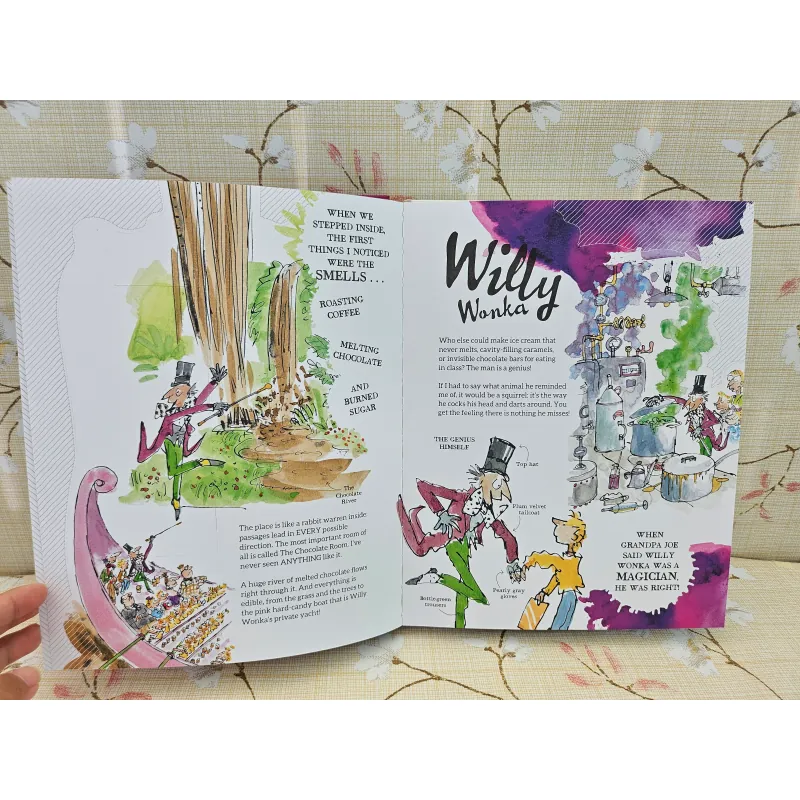 WHEN WE
STEPPED INSIDE,
THE FIRST
THINGS I NOTICED
WERE THE
SMELLS . . .
ROASTING
COFFEE
MELTING
CHOCOLATE
AND
BURNED
SUGAR
The
Chocolate
River
The place is like a rabbit warren inside
passages lead in EVERY possible
direction. The most important room of
all is called The Chocolate Room. I've
never seen ANYTHING like it.
A huge river of melted chocolate flows
right through it. And everything is
edible, from the grass and the trees to
the pink hard-candy boat that is Willy
Wonka's private yacht!
Willy
Wonka
Who else could make ice cream that
never melts, cavity-filling caramels,
or invisible chocolate bars for eating
in class? The man is a genius!
If I had to say what animal he reminded
me of, it would be a squirrel: it's the way
he cocks his head and darts around. You
get the feeling there is nothing he misses!
THE GENIUS
HIMSELF
Top hat
Plum velvet
tailcoat
Bottlegreen
trousers
Pearly gray
gloves
WHEN
GRANDPA JOE
SAID WILLY
WONKA WAS A
MAGICIAN,
HE WAS RIGHT!